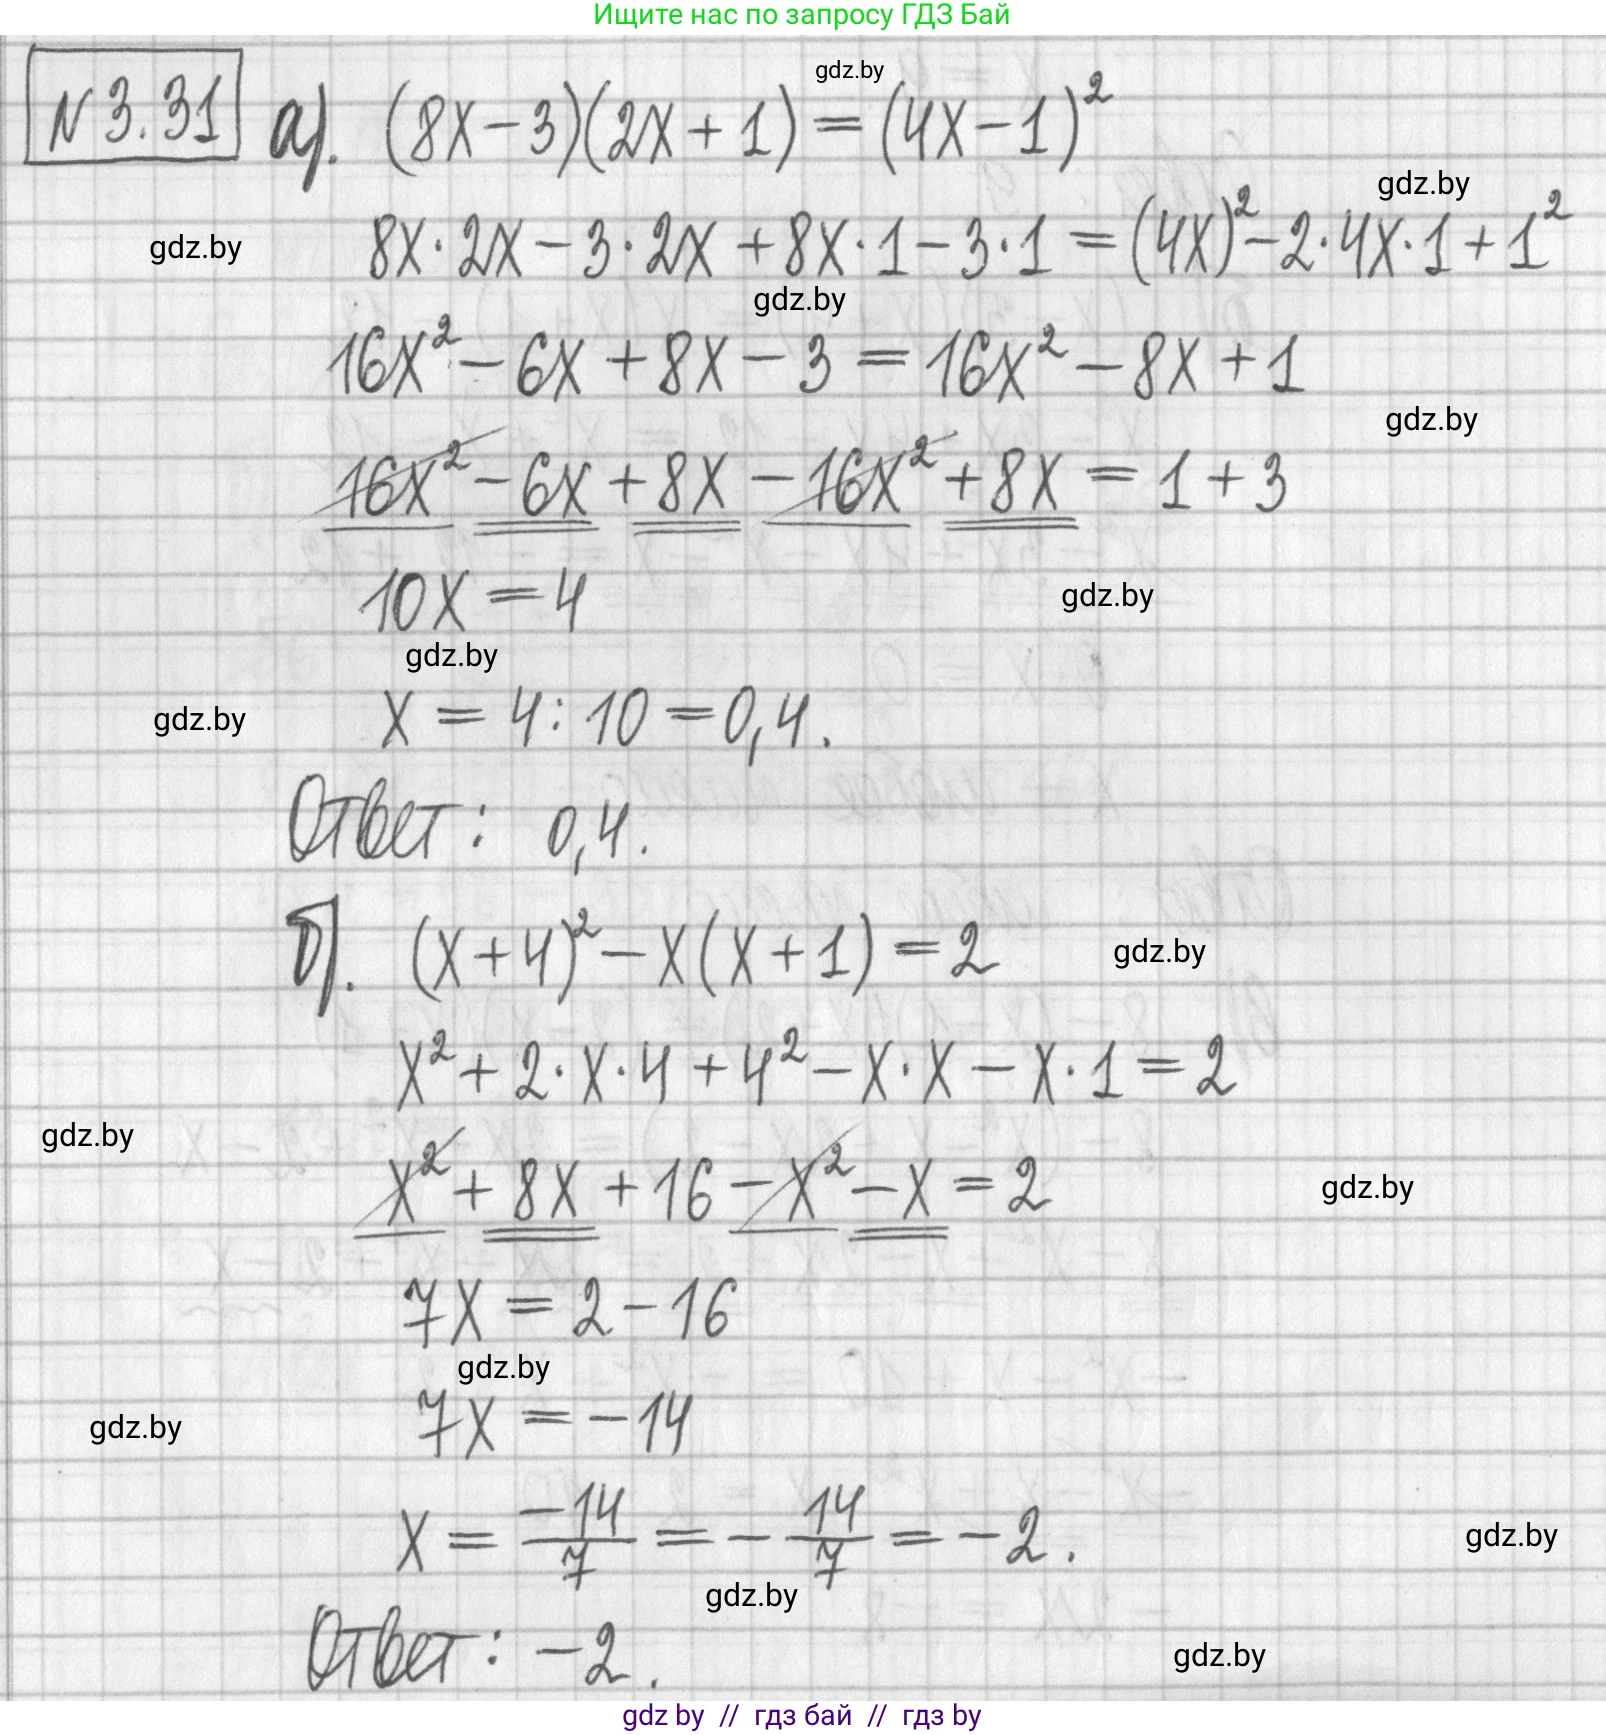 Ищите нас по запросу ГДЗ Бай
gdz.by
N 3.31 а). (8x-3)(2x+1)=(4x-1)²
gdz.by
gdz.by
8x·2x-3·2x+8x·1-3·1=(4x)²-2·4x·1+1²
gdz.by
16x²-6x+8x-3=16x²-8x+1
gdz.by
16x²-6x+8x-16x²+8x=1+3
10x=4
gdz.by
gdz.by
gdz.by
x=4:10=0,4.
Ответ: 0,4.
б). (x+4)²-x(x+1)=2
gdz.by
x²+2·x·4+4²-x·x-x·1=2
gdz.by
x²+8x+16-x²-x=2
gdz.by
7x=2-16
gdz.by
gdz.by
7x=-14
x=-14/7=-14/7=-2.
gdz.by
gdz.by
Ответ: -2.
gdz.by
gdz by // гдз бай // гдз by